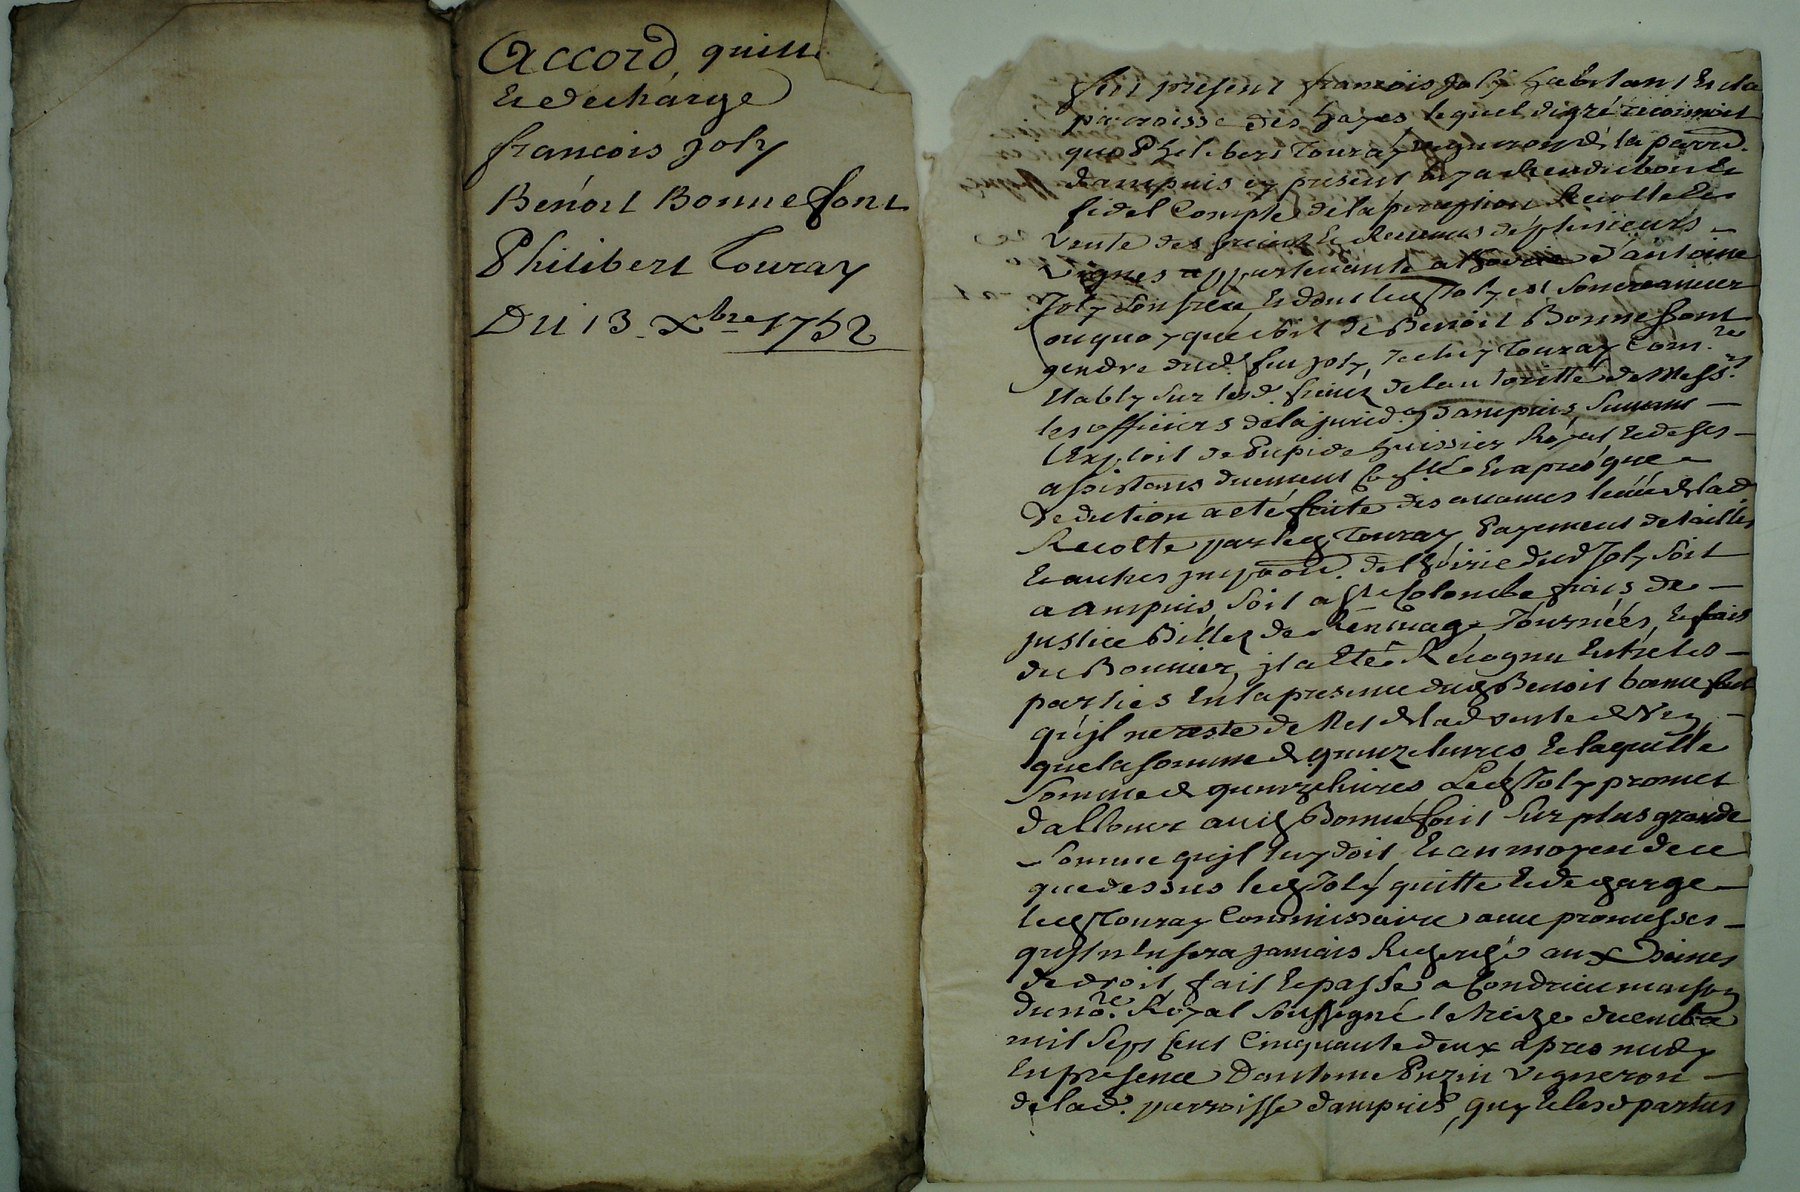 Accord, quitt
Et decharge
francois Joly
Benoit Bonnefont
Philibert Touray
Du 13 Xbre 1752
fut present francois Joly habitant En la
parroisse des hayes lequel de gré reconnoit
que Philibert Touray vigneron de la parre
dampuis cy present luy a Rendu bon Et
fidel Compte de la perception Recolte Et
vente des fruits Et Revenus de plusieurs
vignes appartenante a d'antoine
Joly son frere, Et dont led Joly est Son creancier
ou quoy que ce soit de Benoit Bonnefont
gendre dud. feu Joly, Iceluy Touray Com.re
Etably sur lesd. fruits de lautoritté de Mess.rs
les officiers de la jurid.on dampuis, Suivant
lExploit de Pupide huissier Royal Et de ses
assistans duement Et apres que
deduction a eté faite des avances de lad
Recolte par led Touray, Payement de tailles
Et autres impôons. de lhoirie dud Joly soit
a ampuis, soit a Ste Colombe frais de
justice Billes de Journées, Et frais
du Bannier, jl a Eté Recognu Entre les
parties En la presence dud Benoit bonnefont
qu'jl ne reste de Net de lad vente de Vin
que la somme de quinze livres, Et laquelle
Somme de quinze livres Led Joly promet
dallouer aud Bonnefont sur plus grande
somme qujl luy doit, Et au moyen de ce
que dessus led Joly quitte Et decharge
led Touray Commissaire avec promesses
qujl n En sera jamais Recherché aux Peines
de droit, fait Et passé a Condrieu maison
du no.re Royal soussigné le treize decembre
mil sept cent Cinquante deux apres midy
En presence Dantoine Puzin vigneron
de lad. parroisse dampuis, quy Et lesd parties